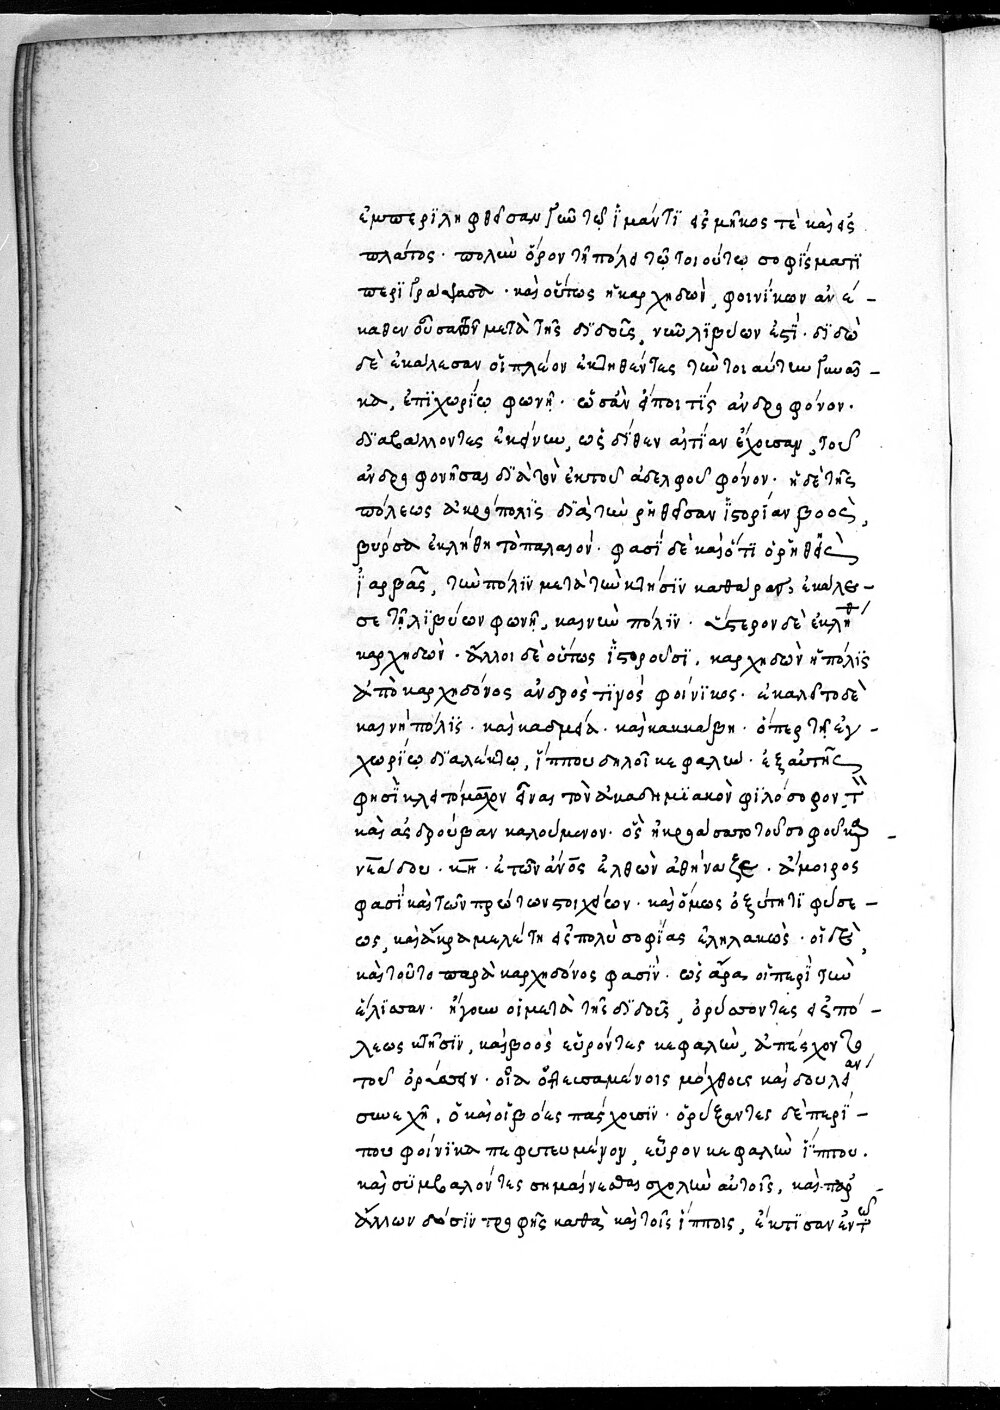 ἐμπεριληφθεῖσαν γῆν τῷ ἱμάντι εἰς μῆκος τὲ καὶ εἰς
πλάτος· πολὺν ὅρον τῇ πόλει τῷ τοιούτῳ σοφίσματι
περιγράψασα· καὶ οὕτως ἡ καρχηδὼν, φοινίκων ἀνέ-
καθεν οὖσα τῶν μετὰ τῆς διδοῦς, νῦν λιβύων ἐστί· διδὼ
δὲ ἐκάλεσαν οἱ πλείον ἐκτηθέντες τὴν τοιαύτην γυναῖ-
κα, ἐπιχωρίῳ φωνῇ· ὡσὰν εἴποι τίς ἀνδροφόνον·
διαβάλλοντες ἐκείνην, ὡς δῆθεν αἰτίαν ἔχουσαν, τοῦ
ἀνδροφονῆσαι διὰ τὸν ἐκ τοῦ ἀδελφοῦ φόνον· ἡ δὲ τῆς
πόλεως ἀκρόπολις διὰ τὴν ῥηθεῖσαν ἱστορίαν βοὸς,
βύρσα ἐκλήθη τὸ παλαιόν· φασὶ δὲ καὶ ὅτι ὁ ῥηθεὶς
ἰαρβᾶς, τὴν πόλιν μετὰ τὴν κτῆσιν καθαρὰν, ἐκάλε-
σε τῇ λιβύων φωνῇ, καινὴν πόλιν· ὕστερον δὲ ἐκλήθη
καρχηδὼν· ἄλλοι δὲ οὕτως ἱστοροῦσι· καρχηδὼν ἡ πόλις
ἀπὸ καρχηδόνος ἀνδρὸς τινὸς φοίνικος· ἐκαλεῖτο δὲ
καινὴ πόλις· καὶ καδμεία· καὶ κακκάβη· ὅπερ τῇ ἐγ-
χωρίῳ διαλέκτῳ, ἵππου δηλοῖ κεφαλὴν· ἐξ αὐτῆς
φησὶ κλειτόμαχον εἶναι τὸν ἀκαδημιακὸν φιλόσοφον, τὸν
καὶ ἀσδρούβαν καλούμενον· ὃς ἠκροάσατο τοῦ σοφοῦ καρ-
νεάδου· κη· ἐτῶν ἄνθρωπος ἐλθὼν ἀθήναζε· ἄμοιρος
φασὶ καὶ τῶν πρώτων στοιχείων· καὶ ὅμως ὀξύτητι φύσε-
ως, καὶ ἄκρα μελέτη εἰς πολὺ σοφίας ἐληλακὼς· οἱ δὲ,
καὶ τοῦτο παρὰ καρχηδόνος φασὶν· ὡς ἄρα οἱ περὶ τὴν
ἔλισσαν· ἤγουν οἱ μετὰ τῆς διδοῦς, ὀρύσσοντες εἰς πό-
λεως κτῆσιν, καὶ βοὸς εὑρόντες κεφαλὴν, ἀπέσχοντο
τοῦ ὀρύσσειν· οἷα ὀθεισαμένοις μόχθους καὶ δουλείαν
συνεχῆ, ὃ καὶ οἱ βόες πάσχουσιν· ὀρύξαντες δὲ περί-
που φοίνικα πεφυτευμένον, εὗρον κεφαλὴν ἵππου·
καὶ συμβαλόντες σημαίνεσθαι σχολὴν αὐτοῖς, καὶ παρ-
ἄλλων δόσιν τροφῆς καθὰ καὶ τοῖς ἵπποις, ἔκτισαν ἐν τῷ